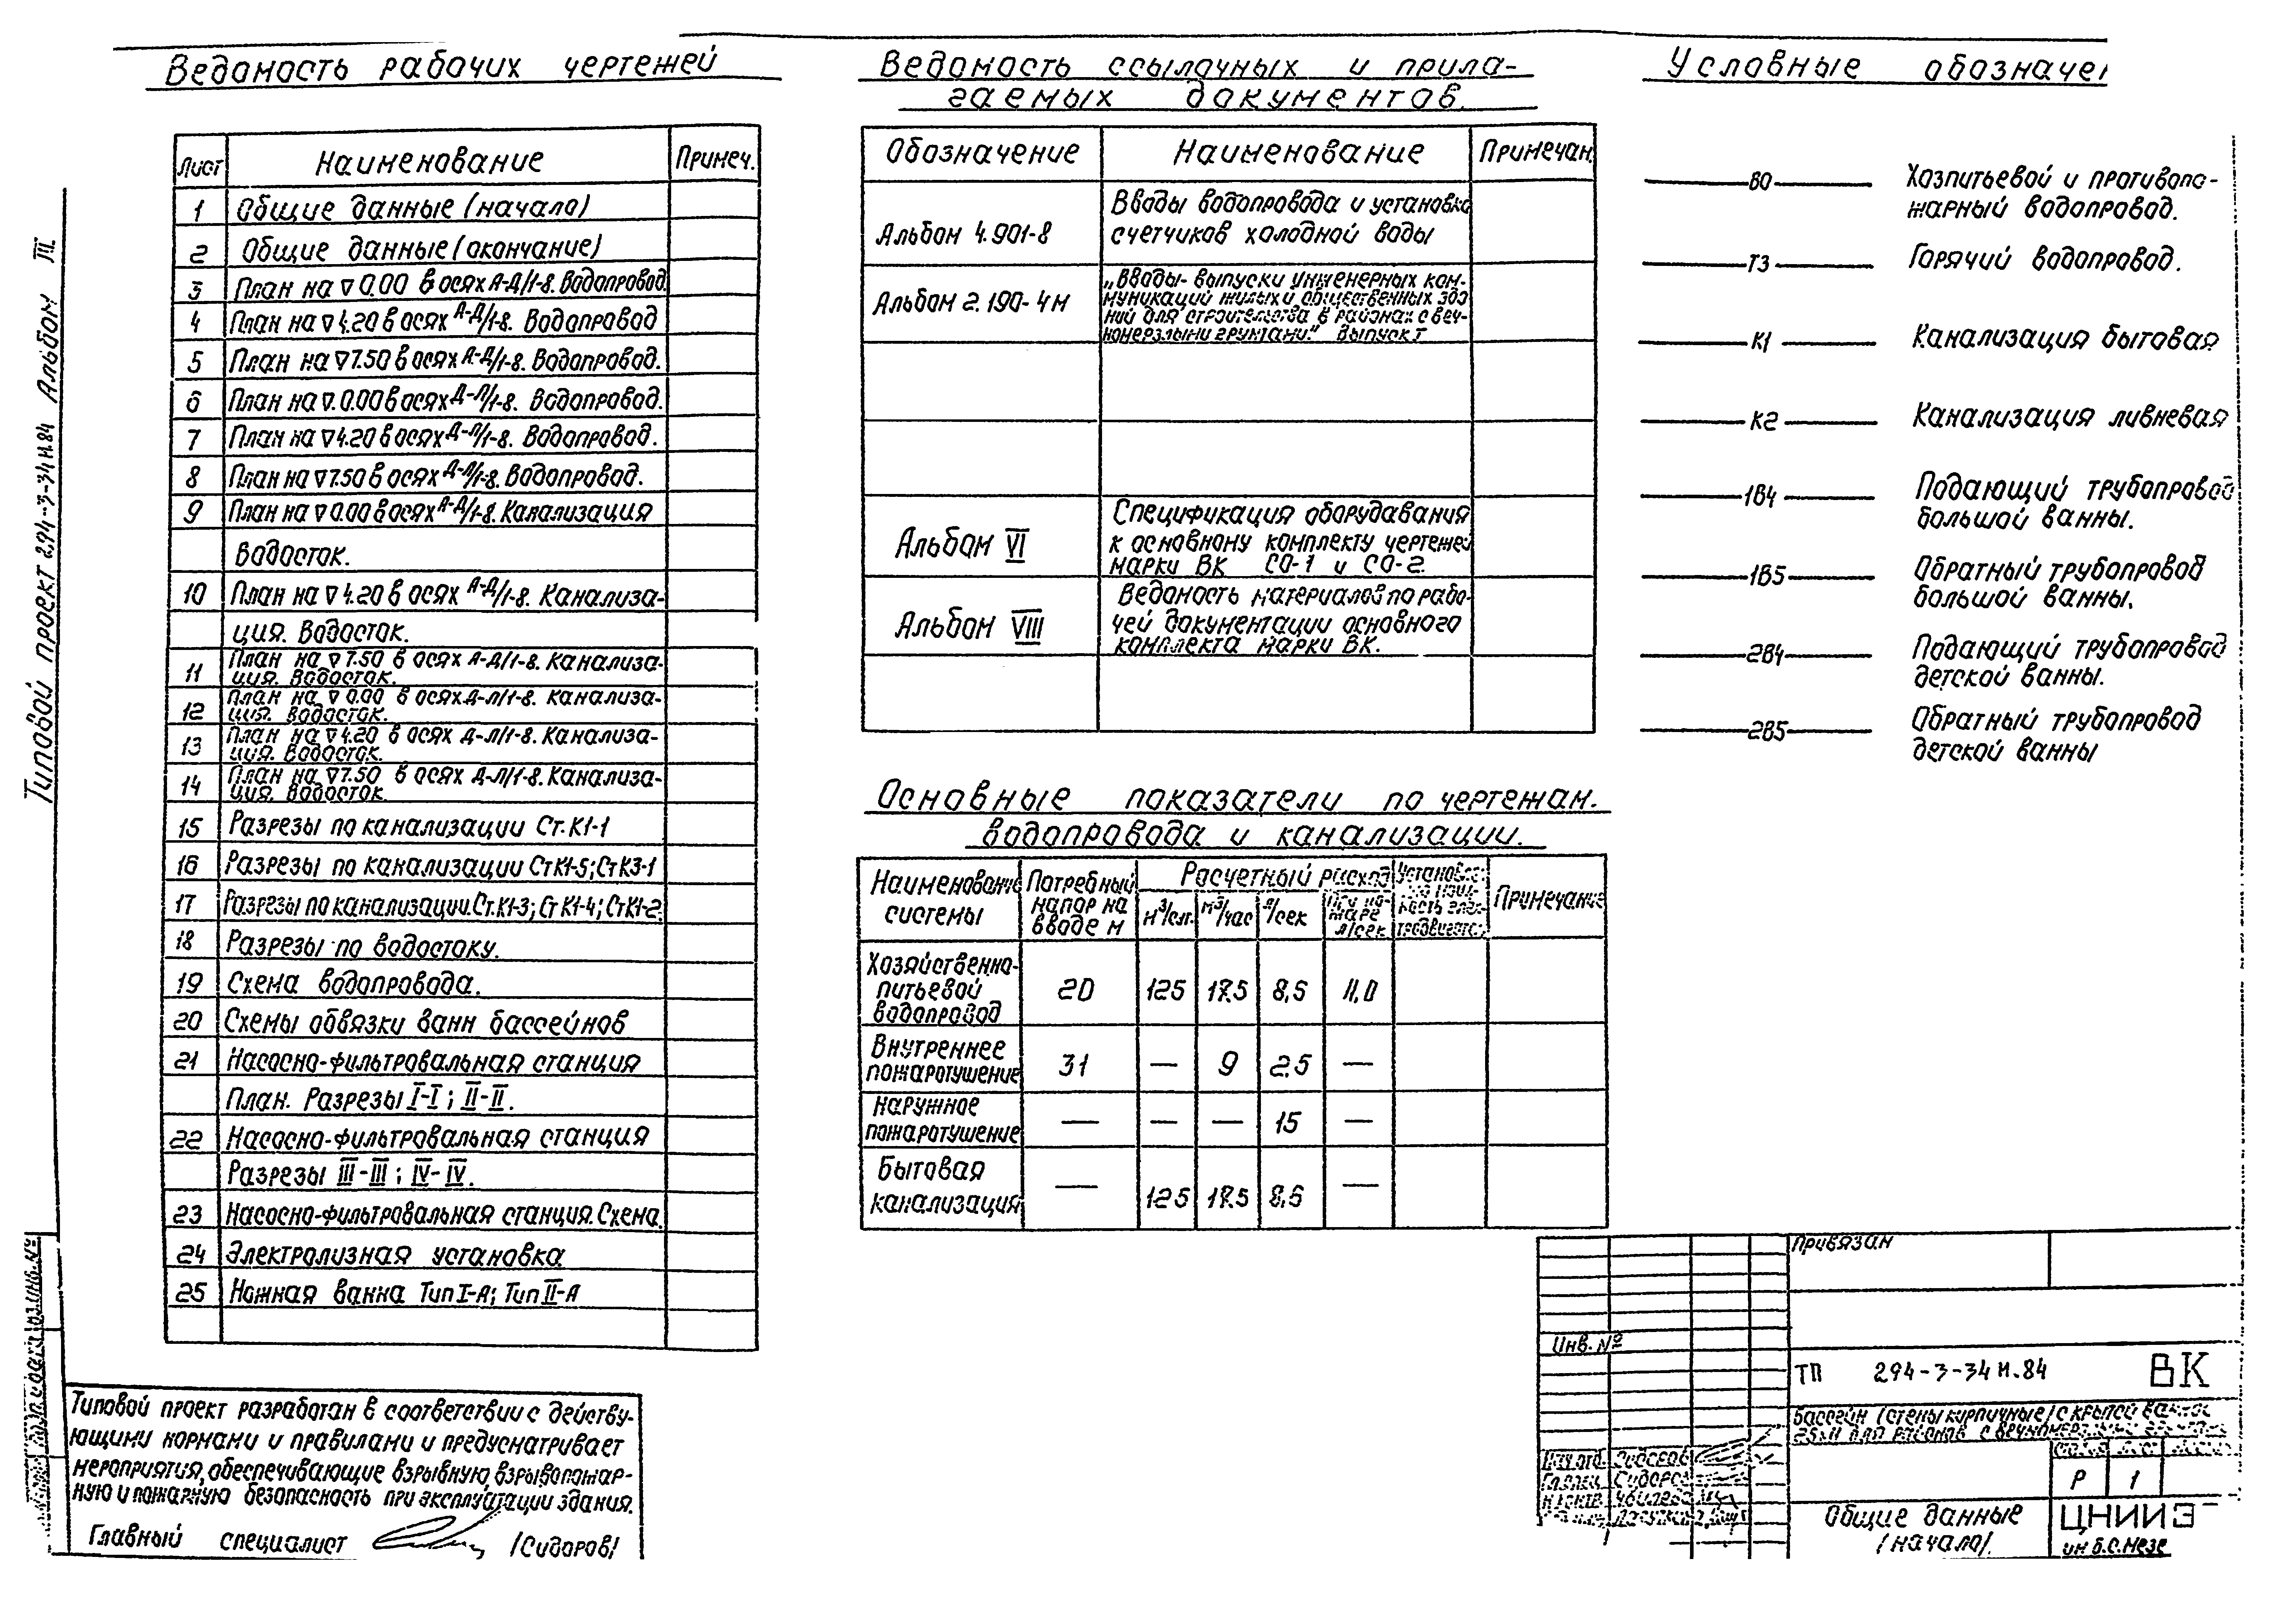 Типовой проект 294-3-34м.84 Альбом III
Ведомость рабочих чертежей
Лист Наименование Примеч.
1 Общие данные (начало)
2 Общие данные (окончание)
3 План на ▽ 0.00 в осях А-Д/1-8. Водопровод.
4 План на ▽ 4.20 в осях А-Д/1-8. Водопровод
5 План на ▽ 7.50 в осях А-Д/1-8. Водопровод.
6 План на ▽. 0.00 в осях Д-Л/1-8. Водопровод.
7 План на ▽ 4.20 в осях Д-Л/1-8. Водопровод.
8 План на ▽ 7.50 в осях Д-Л/1-8. Водопровод.
9 План на ▽ 0.00 в осях А-Д/1-8. Канализация
Водосток.
10 План на ▽ 4.20 в осях А-Д/1-8. Канализа-
ция. Водосток.
11 План на ▽ 7.50 в осях А-Д/1-8. Канализа-
ция. Водосток.
12 План на ▽ 0.00 в осях Д-Л/1-8. Канализа-
ция. Водосток.
13 План на ▽ 4.20 в осях Д-Л/1-8. Канализа-
ция. Водосток.
14 План на ▽ 7.50 в осях Д-Л/1-8. Канализа-
ция. Водосток.
15 Разрезы по канализации Ст. К1-1
16 Разрезы по канализации Ст К1-5; Ст К3-1
17 Разрезы по канализации. Ст. К1-3; Ст К1-4; Ст К1-2.
18 Разрезы по водостоку.
19 Схема водопровода.
20 Схемы обвязки ванн бассейнов
21 Насосно-фильтровальная станция
План. Разрезы I-I; II-II.
22 Насосно-фильтровальная станция
Разрезы III-III; IV-IV.
23 Насосно-фильтровальная станция. Схема.
24 Электролизная установка
25 Ножная ванна Тип I-А; Тип II-А
Типовой проект разработан в соответствии с действу-
ющими нормами и правилами и предусматривает
мероприятия, обеспечивающие взрывную, взрывопожар-
ную и пожарную безопасность при эксплуатации здания.
Главный специалист /Сидоров/
Ведомость ссылочных и прила-
гаемых документов.
Обозначение Наименование Примечан.
Альбом 4.901-8 Вводы водопровода и установка
счетчиков холодной воды
Альбом 2.190-4м „Вводы-выпуски инженерных ком-
муникаций жилых и общественных зда
ний для строительства в районах с веч-
номерзлыми грунтами." Выпуск I
Альбом VI Спецификация оборудавания
к основному комплекту чертежей
марки ВК СО-1 и СО-2.
Альбом VIII Ведомость материалов по рабо-
чей документации основного
комплекта марки ВК.
Основные показатели по чертежам.
водопровода и канализации.
Наименование системы Потребный напор на вводе м Расчетный расход м³/сут. м³/час л/сек При по-жаре л/сек Примечание
Хозяйственно-питьевой водопровод 20 125 17.5 8,6 11,0
Внутреннее пожаротушение 31 — 9 2.5 —
Наружное пожаротушение — — — 15 —
Бытовая канализация — 125 17.5 8,6 —
Условные обозначе
В0 Хозпитьевой и противопо-
жарный водопровод.
Т3 Горячий водопровод.
К1 Канализация бытовая
К2 Канализация ливневая
1В4 Подающий трубопровод
большой ванны.
1В5 Обратный трубопровод
большой ванны.
2В4 Подающий трубопровод
детской ванны.
2В5 Обратный трубопровод
детской ванны
Привязан
Инв. №
ТП 294-3-34м.84 ВК
Бассейн (стены кирпичные) с крытой
Р 1
Общие данные
/начало/.
ЦНИИЭ
им Б.С. Мезе